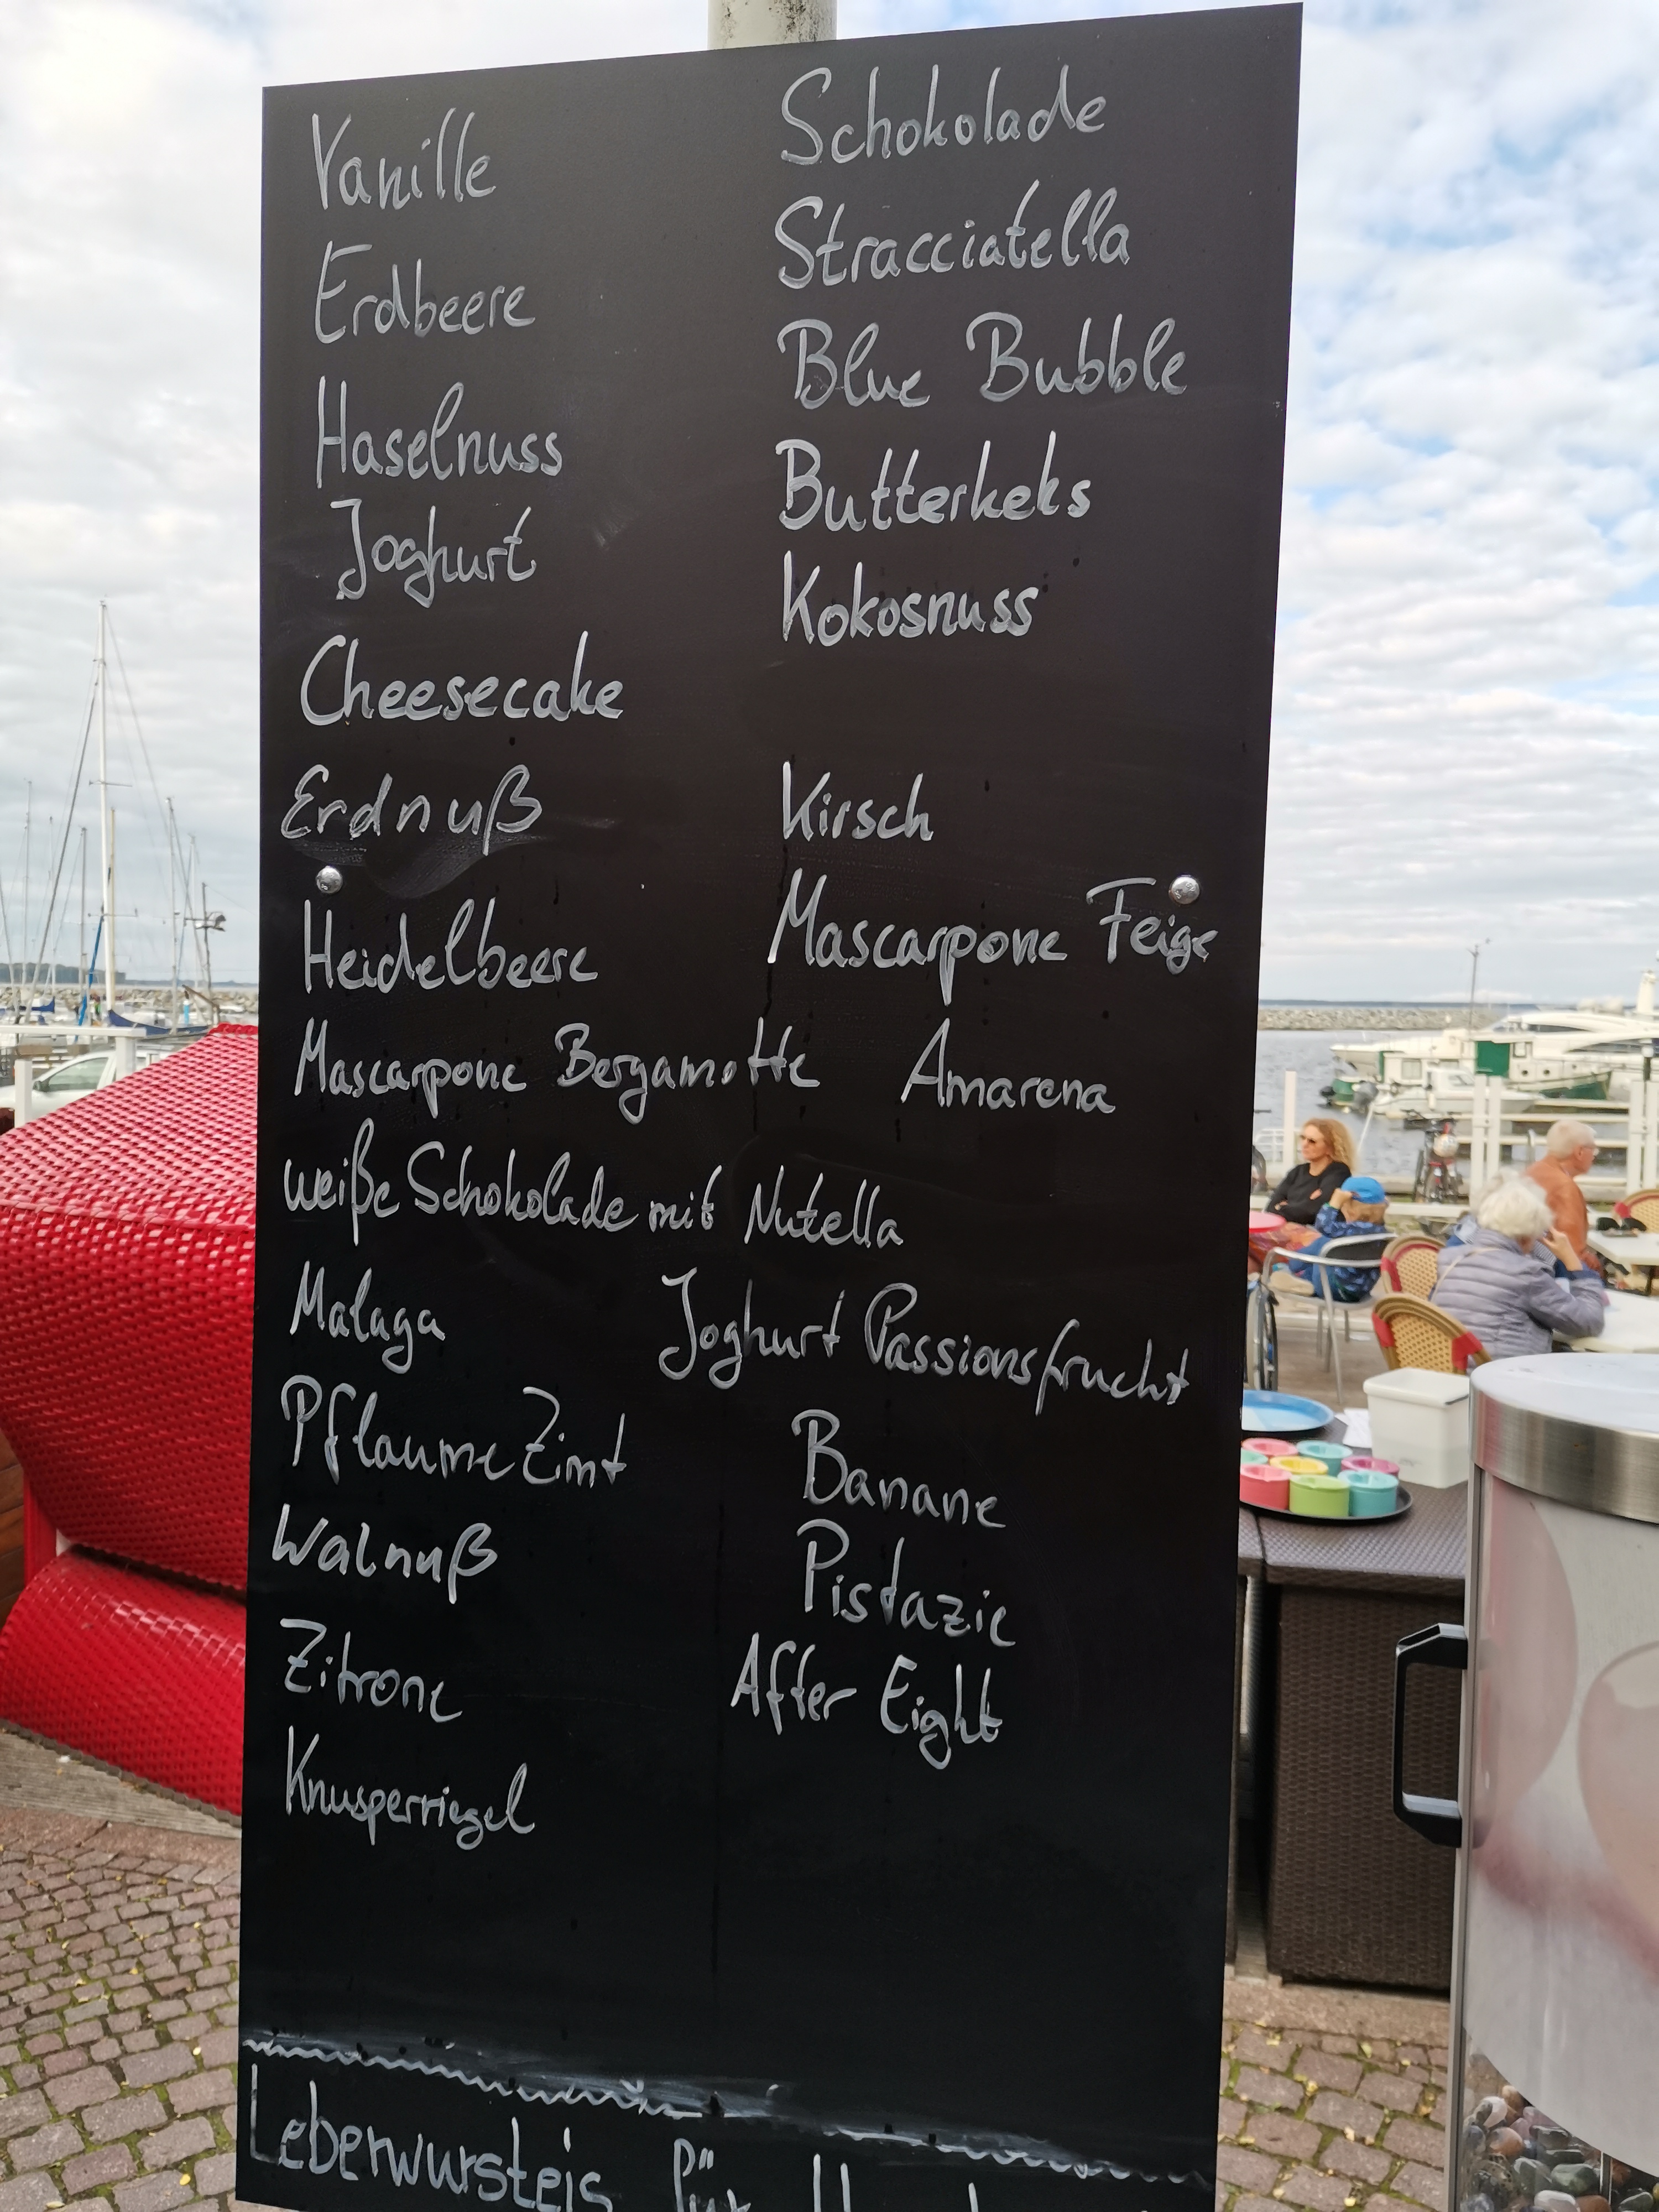 Vanille
Schokolade
Erdbeere
Stracciatella
Haselnuss
Blue Bubble
Joghurt
Butterkeks
Cheesecake
Kokosnuss
Erdnuß
Kirsch
Heidelbeere
Mascarpone Feige
Mascarpone Bergamotte
Amarena
weiße Schokolade mit Nutella
Malaga
Joghurt Passionsfrucht
Pflaume Zimt
Banane
Walnuß
Pistazie
Zitrone
After Eight
Knusperriegel
Leberwursteis für